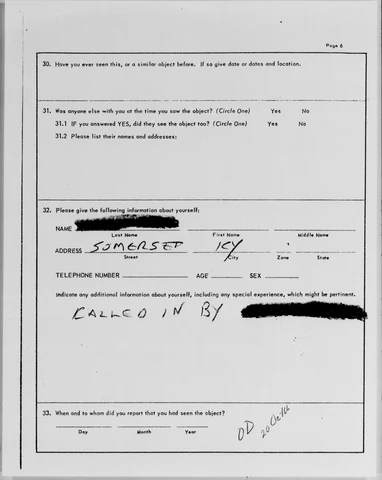 Page 6
30. Have you ever seen this, or a similar object before. If so give date or dates and location.
31. Was anyone else with you at the time you saw the object? (Circle One) Yes No
31.1 IF you answered YES, did they see the object too? (Circle One) Yes No
31.2 Please list their names and addresses:
32. Please give the following information about yourself:
NAME
Last Name First Name Middle Name
ADDRESS SOMERSET KY
Street City Zone State
TELEPHONE NUMBER AGE SEX
Indicate any additional information about yourself, including any special experience, which might be pertinent.
CALLED IN BY
33. When and to whom did you report that you had seen the object?
Day Month Year
OD
20 Oct